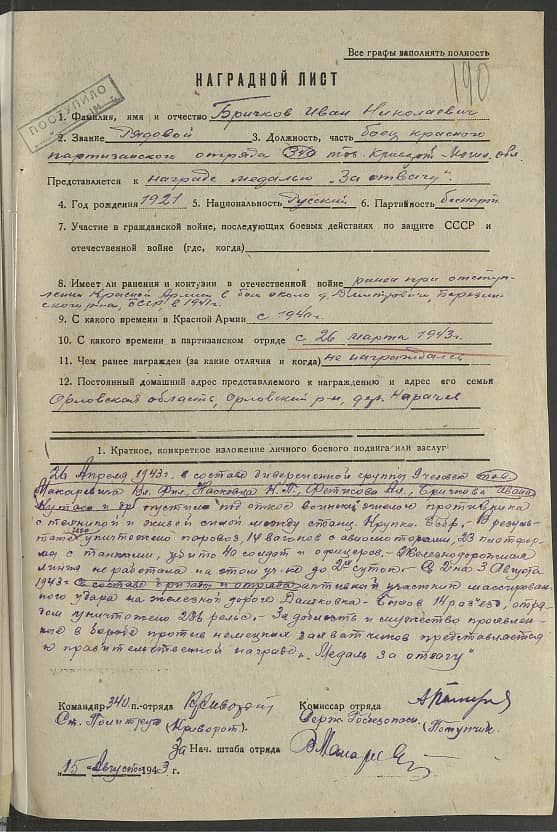 Все графы заполнять полность
190
НАГРАДНОЙ ЛИСТ
ПОСТУПИЛО
1. Фамилия, имя и отчество Бричков Иван Николаевич
2. Звание Рядовой 3. Должность, часть боец красного
партизанского отряда 340 тов.
Представляется к награде медалью "За отвагу"
4. Год рождения 1921 5. Национальность Русский 6. Партийность беспарт
7. Участие в гражданской войне, последующих боевых действиях по защите СССР и
отечественной войне (где, когда)
8. Имеет ли ранения и контузии в отечественной войне ранен при отступ-
лении Красной Армии в бою около д. Дмитровичи,
БССР, в 1941г.
9. С какого времени в Красной Армии с 1940г.
10. С какого времени в партизанском отряде с 26 марта 1943г.
11. Чем ранее награжден (за какие отличия и когда) не награждался
12. Постоянный домашний адрес представляемого к награждению и адрес его семьи
Орловская область, Орловский р-н, дер. Карачев
1. Краткое, конкретное изложение личного боевого подвига или заслуг
26 Апреля 1943г. в составе диверсионной группы 9 человек тов.
Макаревича Вл. Фил., Пасковца Н.П., Фетисова Ил., Бричкова Ивана
и др пустили под откос воинский эшелон противника
с техникой и живой силой между станц. Крупки - Бобр. В резуль-
тате уничтожено паровоз, 14 вагонов с авиомоторами, 23 платфор-
мы с танками, убито 40 солдат и офицеров. Железнодорожная
линия не работала на этом уч-ке до 2х суток. С 2 на 3 Августа
1943г. в составе отряда активный участник массирован-
ного удара на железной дороге Дашковка - разъезд, отря-
дом уничтожено 286 рельс. За доблесть и мужество проявлен-
ные в борьбе против немецких захватчиков представляется
к правительственной награде "Медаль за отвагу"
Командир 340 п.-отряда Комиссар отряда
Ст. Политрук (Криворот) Серж. Госбезопасн. (Потупчик)
За Нач. штаба отряда
"15" Августа 1943 г.